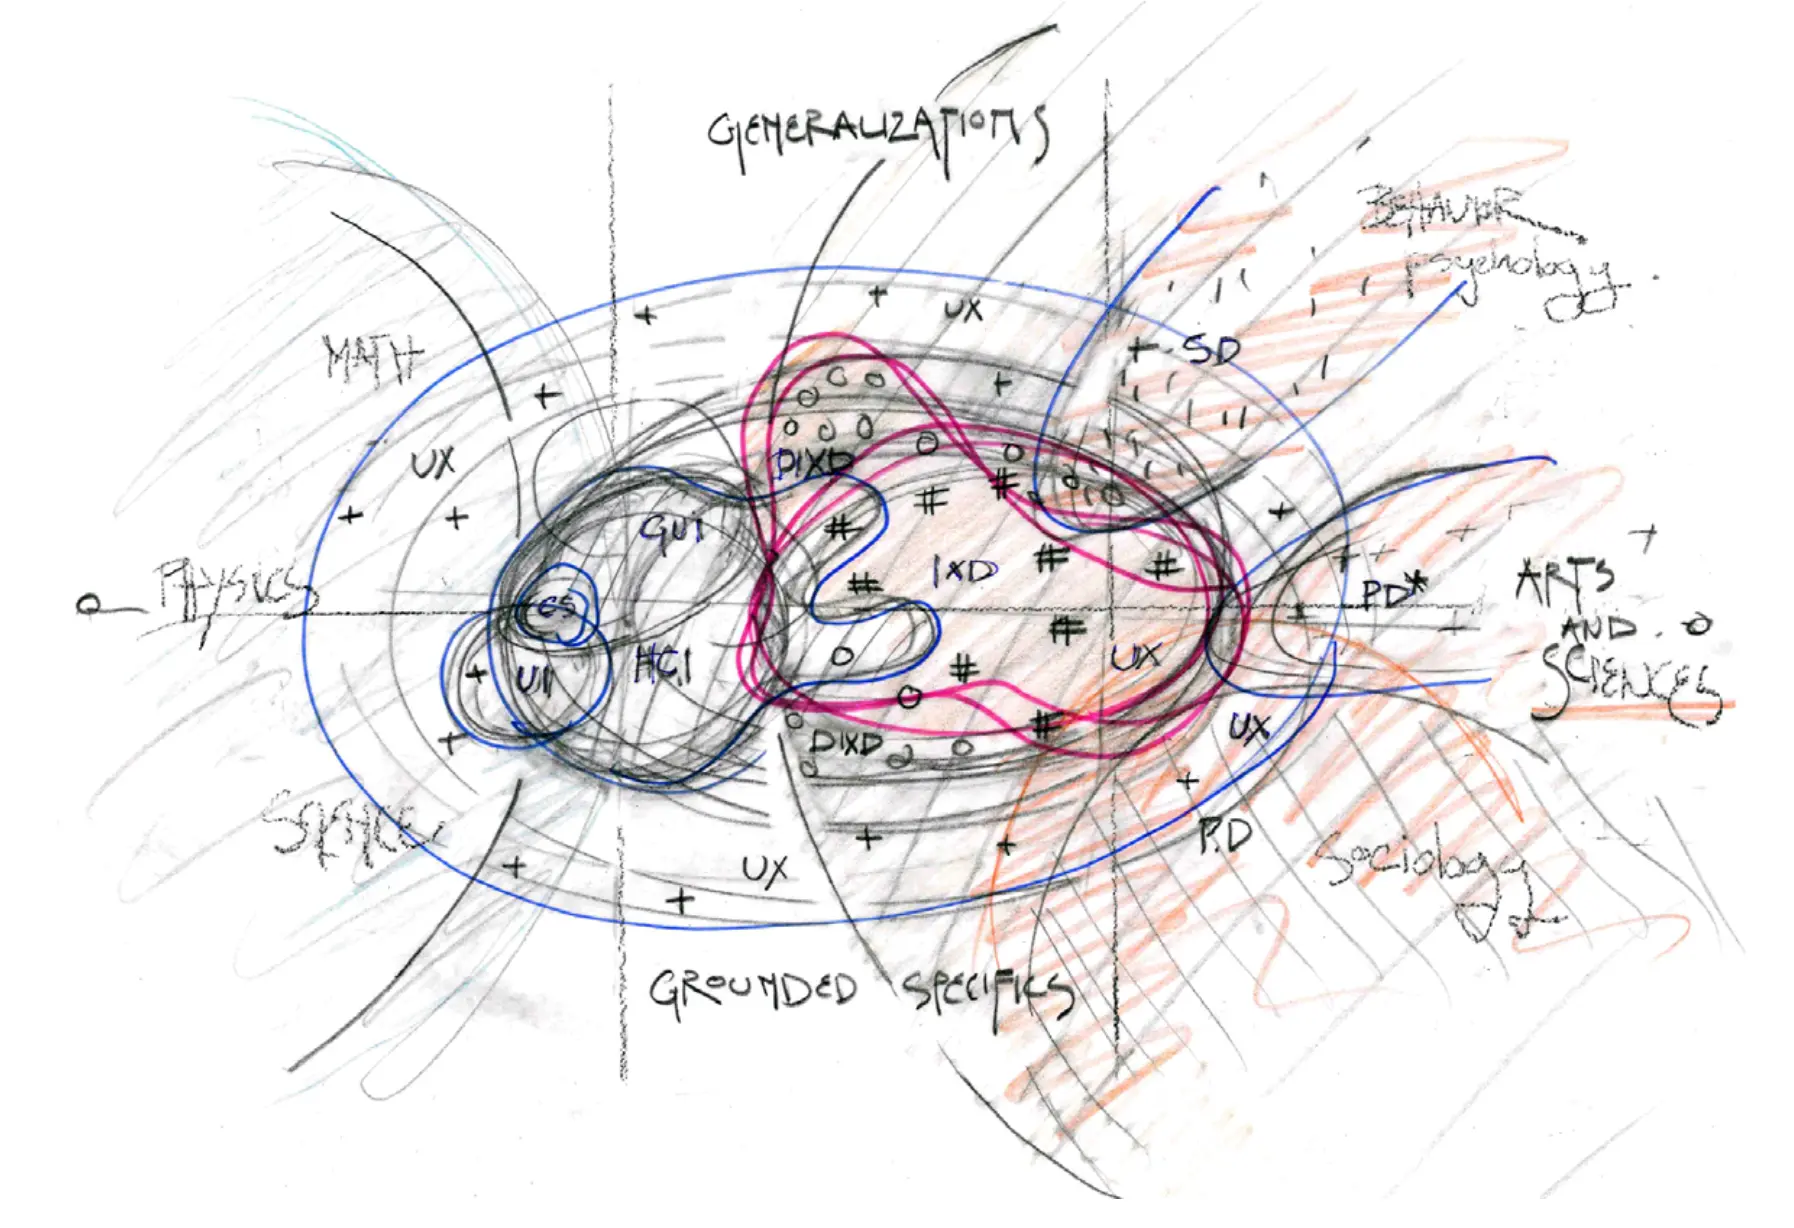 GENERALIZATIONS
BEHAVIOR
psychology
UX
MATH
SD
UX
DIXD
GUI
IXD
PHYSICS
CS
PD*
ARTS
AND
SCIENCES
UI
HCI
UX
UX
DIXD
SPACE
PD
UX
Sociology
GROUNDED SPECIFICS